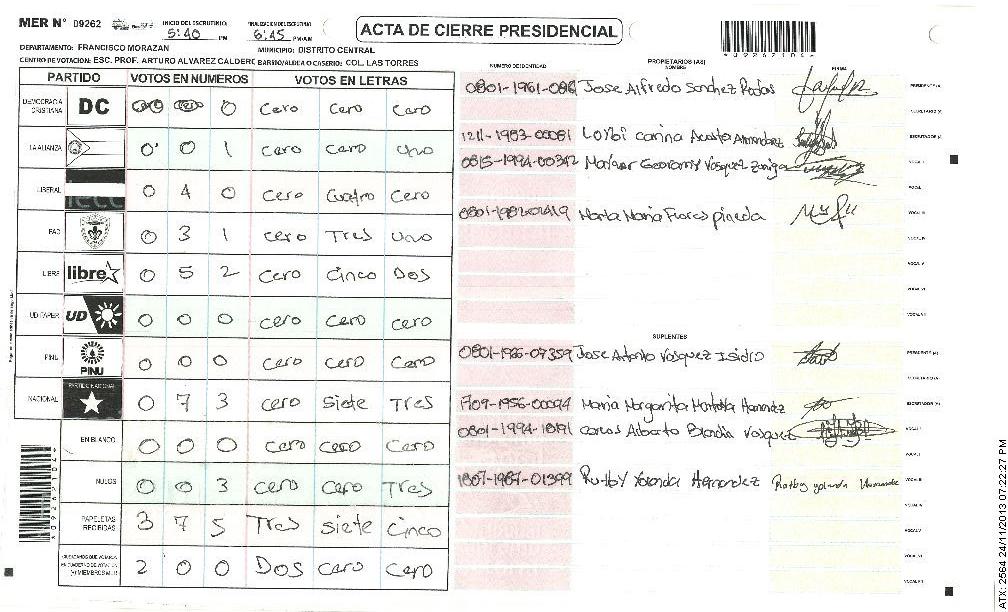 MER N° 09262
INICIO DEL ESCRUTINIO: 5:40 PM
FINALIZACION DEL ESCRUTINIO: 6:45 PM/AM
ACTA DE CIERRE PRESIDENCIAL
DEPARTAMENTO: FRANCISCO MORAZAN
MUNICIPIO: DISTRITO CENTRAL
CENTRO DE VOTACION: ESC. PROF. ARTURO ALVAREZ CALDERO BARRIO/ALDEA O CASERIO: COL. LAS TORRES
PARTIDO VOTOS EN NUMEROS VOTOS EN LETRAS
DEMOCRACIA CRISTIANA DC 0 Cero Cero Cero
LA ALIANZA 0 0 1 Cero Cero Uno
LIBERAL 0 4 0 Cero Cuatro Cero
PAC 0 3 1 Cero Tres Uno
LIBRE libre 0 5 2 Cero Cinco Dos
UD FAPER UD 0 0 0 Cero Cero Cero
PINU PINU 0 0 0 Cero Cero Cero
NACIONAL PARTIDO NACIONAL 0 7 3 Cero Siete Tres
EN BLANCO 0 0 0 Cero Cero Cero
NULOS 0 0 3 Cero Cero Tres
PAPELETAS RECIBIDAS 3 7 5 Tres Siete Cinco
2 0 0 Dos Cero Cero
NUMERO DE IDENTIDAD PROPIETARIOS (AS) NOMBRE FIRMA
0801-1961- Jose Alfredo Sanchez Rodas PRESIDENTE (A)
SECRETARIO (A)
1211-1983-00081 Carina Acosta ESCRUTADOR (A)
0815-1994-00342 Geovanny Vasquez Zuniga VOCAL I
VOCAL II
0801-1982-01419 Marta Maria Flores pineda VOCAL III
VOCAL IV
VOCAL V
VOCAL VI
VOCAL VII
SUPLENTES
0801-1986-07359 Jose Antonio Vasquez Isidro PRESIDENTE (A)
SECRETARIO (A)
1709-1956-00094 Maria Margarita ESCRUTADOR (A)
0801-1994-18191 Carlos Alberto Vasquez VOCAL I
VOCAL II
1807-1987-01399 Yolanda Hernandez VOCAL III
VOCAL IV
VOCAL V
VOCAL VI
VOCAL VII
ATX: 2564 24/11/2013 07:22:27 PM